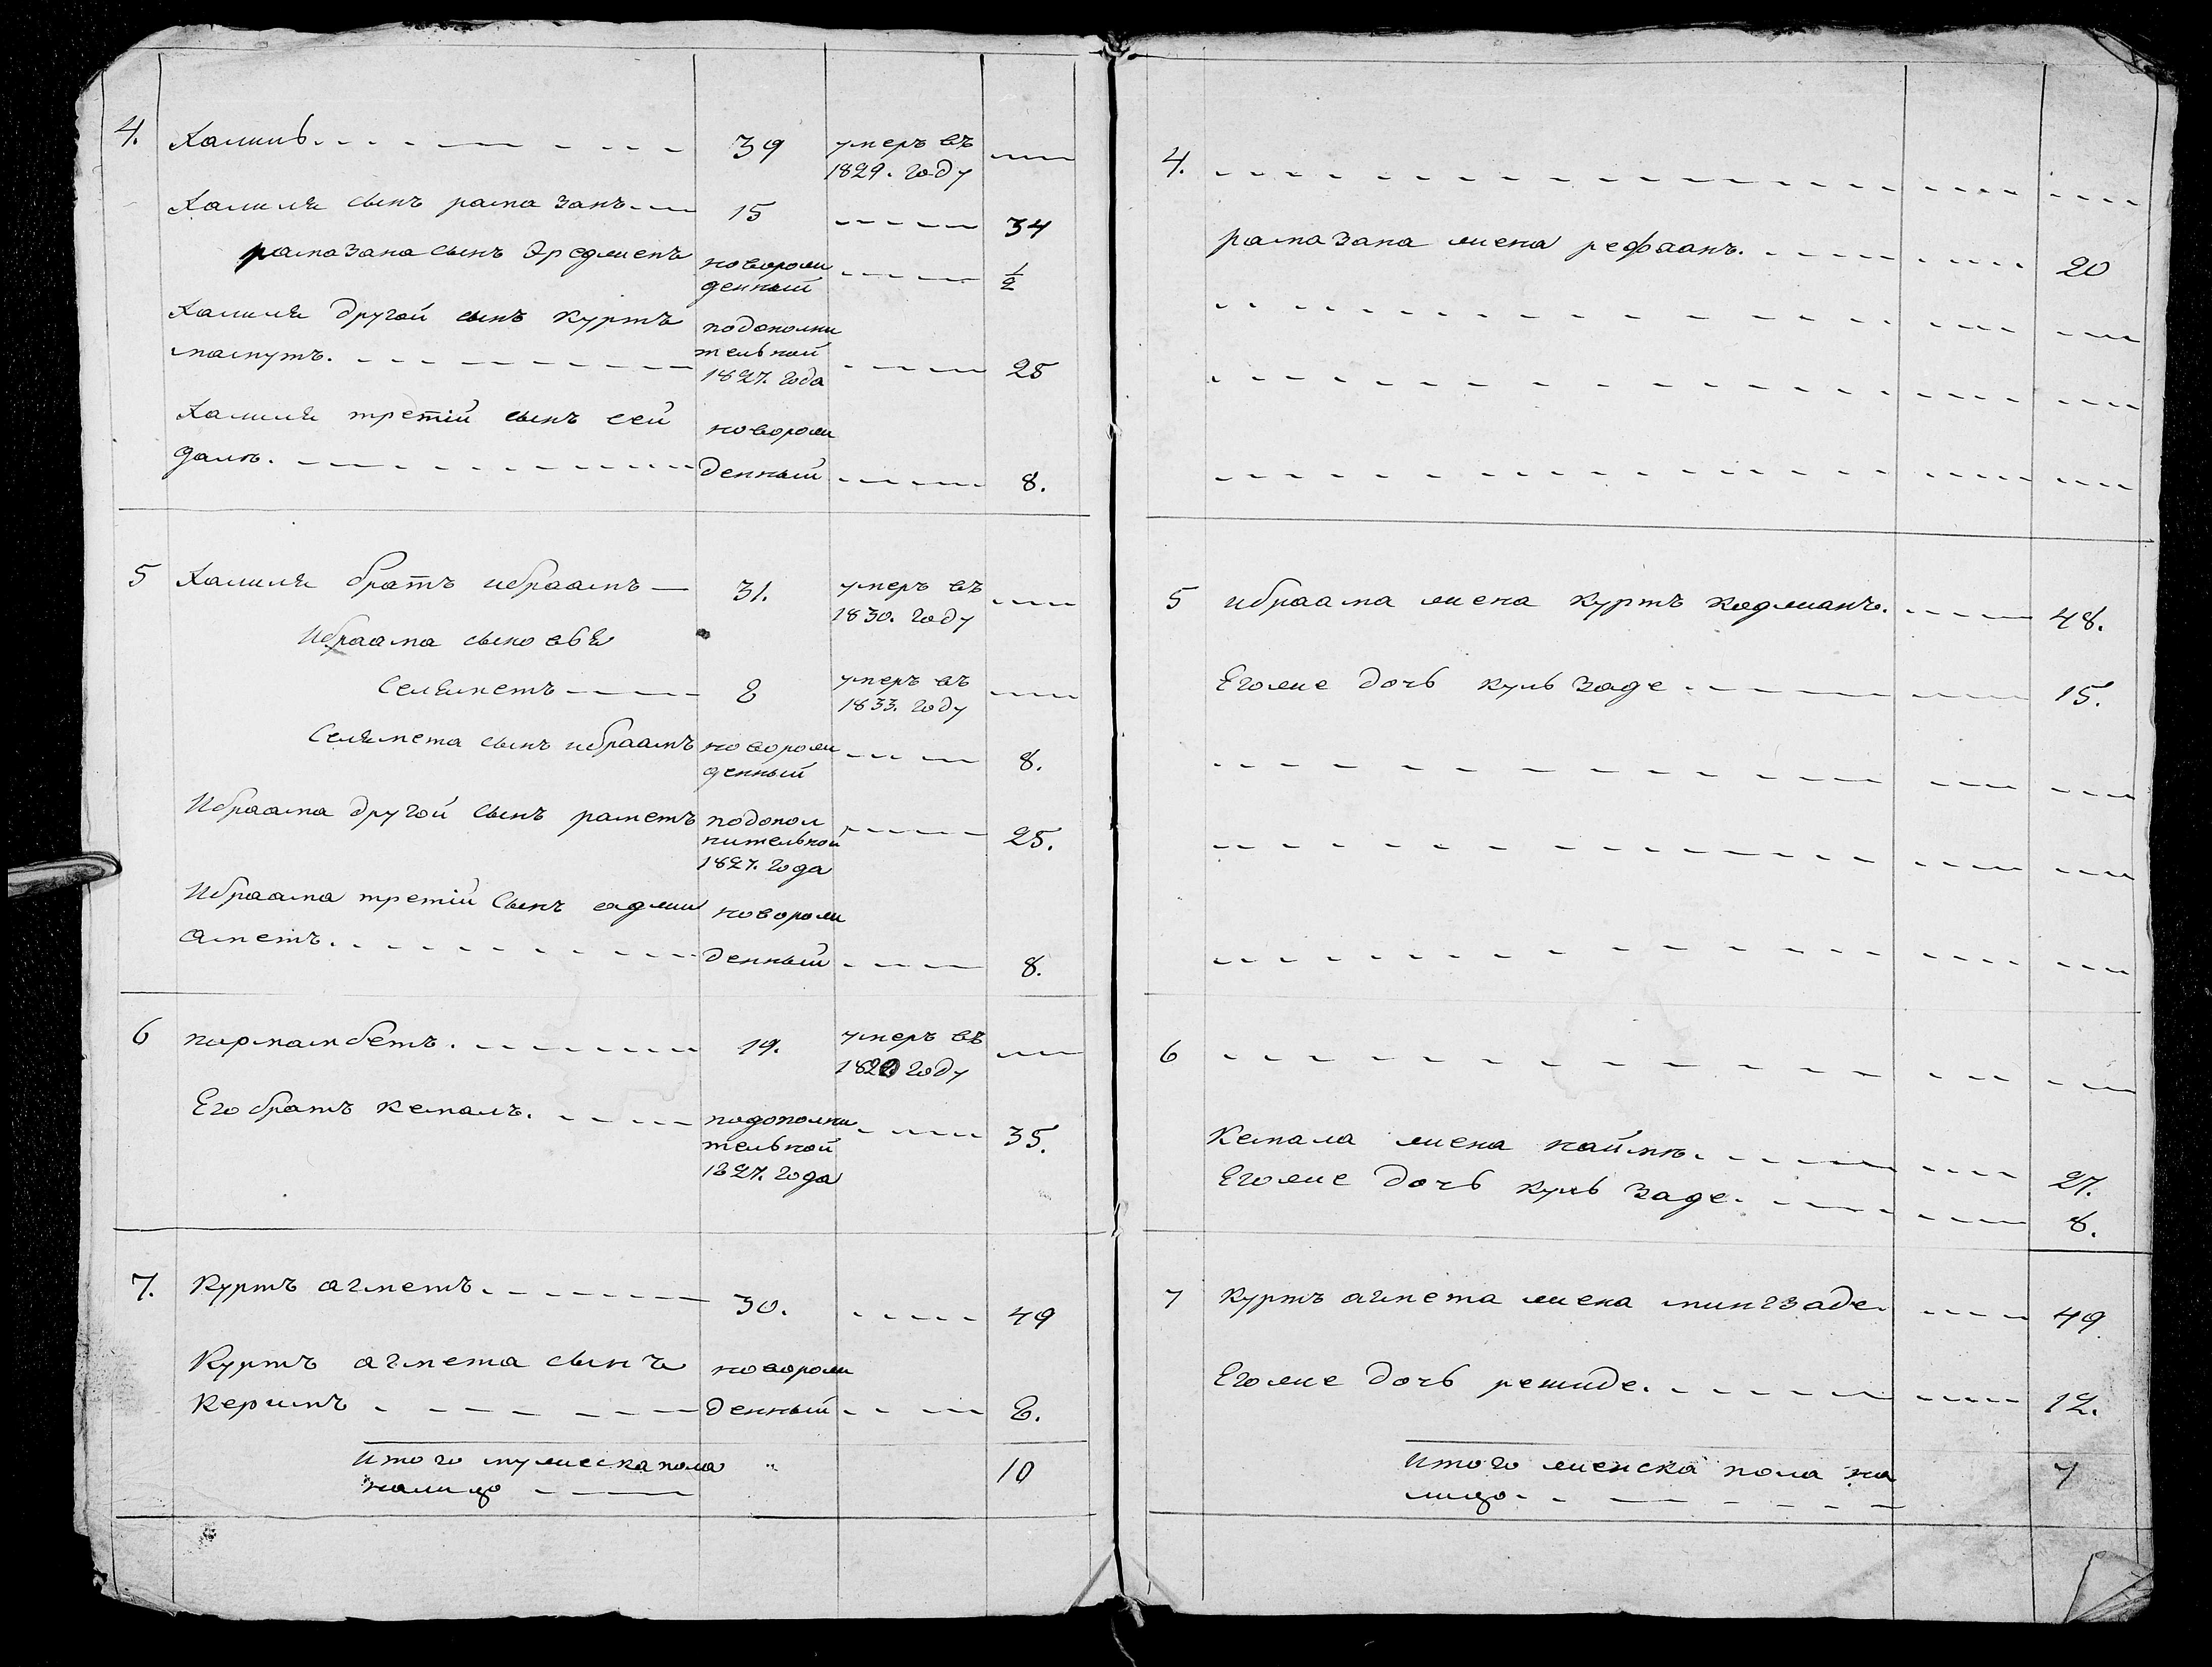 4. Халиль 39 умеръ въ
1829. году
Халиля сынъ рамазанъ 15 34
рамазана сынъ Эреджепъ новорож
денный 1/2
Халиля другой сынъ Куртъ
мамутъ. подополни
тельной
1827. года 25
Халиля третій сынъ сей
дали. новорож
денный 8.
5 Халиля братъ ибраамъ 31. умеръ въ
1830. году
Ибраама сыновья
Селяметъ 8 умеръ въ
1833. году
Селямета сынъ ибраамъ новорож
денный 8.
Ибраама другой сынъ раметъ подопол
нительной
1827. года 25.
Ибраама третій сынъ аджи
аметъ. новорож
денный 8.
6 пирмамбетъ. 19. умеръ въ
году
Его братъ кемалъ. подополни
тельной
1827. года 35.
7. Куртъ агметъ. 30. 49
Куртъ агмета сынъ
Керимъ новорож
денный 8.
Итого мужеска пола
налицо " 10
4.
рамазана жена рефаанъ. 20
5 ибраама жена Куртъ 48.
Егоже дочь куль заде. 15.
6
Кемала жена найме. 27.
Егоже дочь куль заде. 8.
7 Куртъ агмета жена 49
Егоже дочь решиде. 12.
Итого женска пола на
лицо. 7